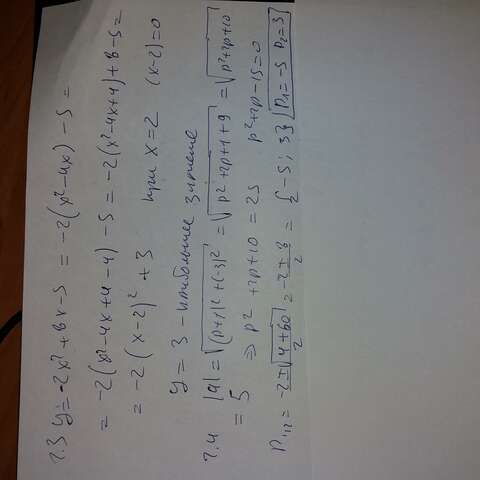 2.3 y = -2x² + 8x - 5 = -2(x² - 4x) - 5 =
= -2(x² - 4x + 4 - 4) - 5 = -2(x² - 4x + 4) + 8 - 5 =
= -2(x - 2)² + 3 при x = 2 (x - 2) = 0
y = 3 - наибольшее значение
2.4 |a| = √(p+1)² + (-3)² = √p² + 2p + 1 + 9 = √p² + 2p + 10
= 5 ⇒ p² + 2p + 10 = 25 p² + 2p - 15 = 0
p₁,₂ = -2 ± √4 + 60 / 2 = -2 ± 8 / 2 = {-5; 3} p₁ = -5 p₂ = 3